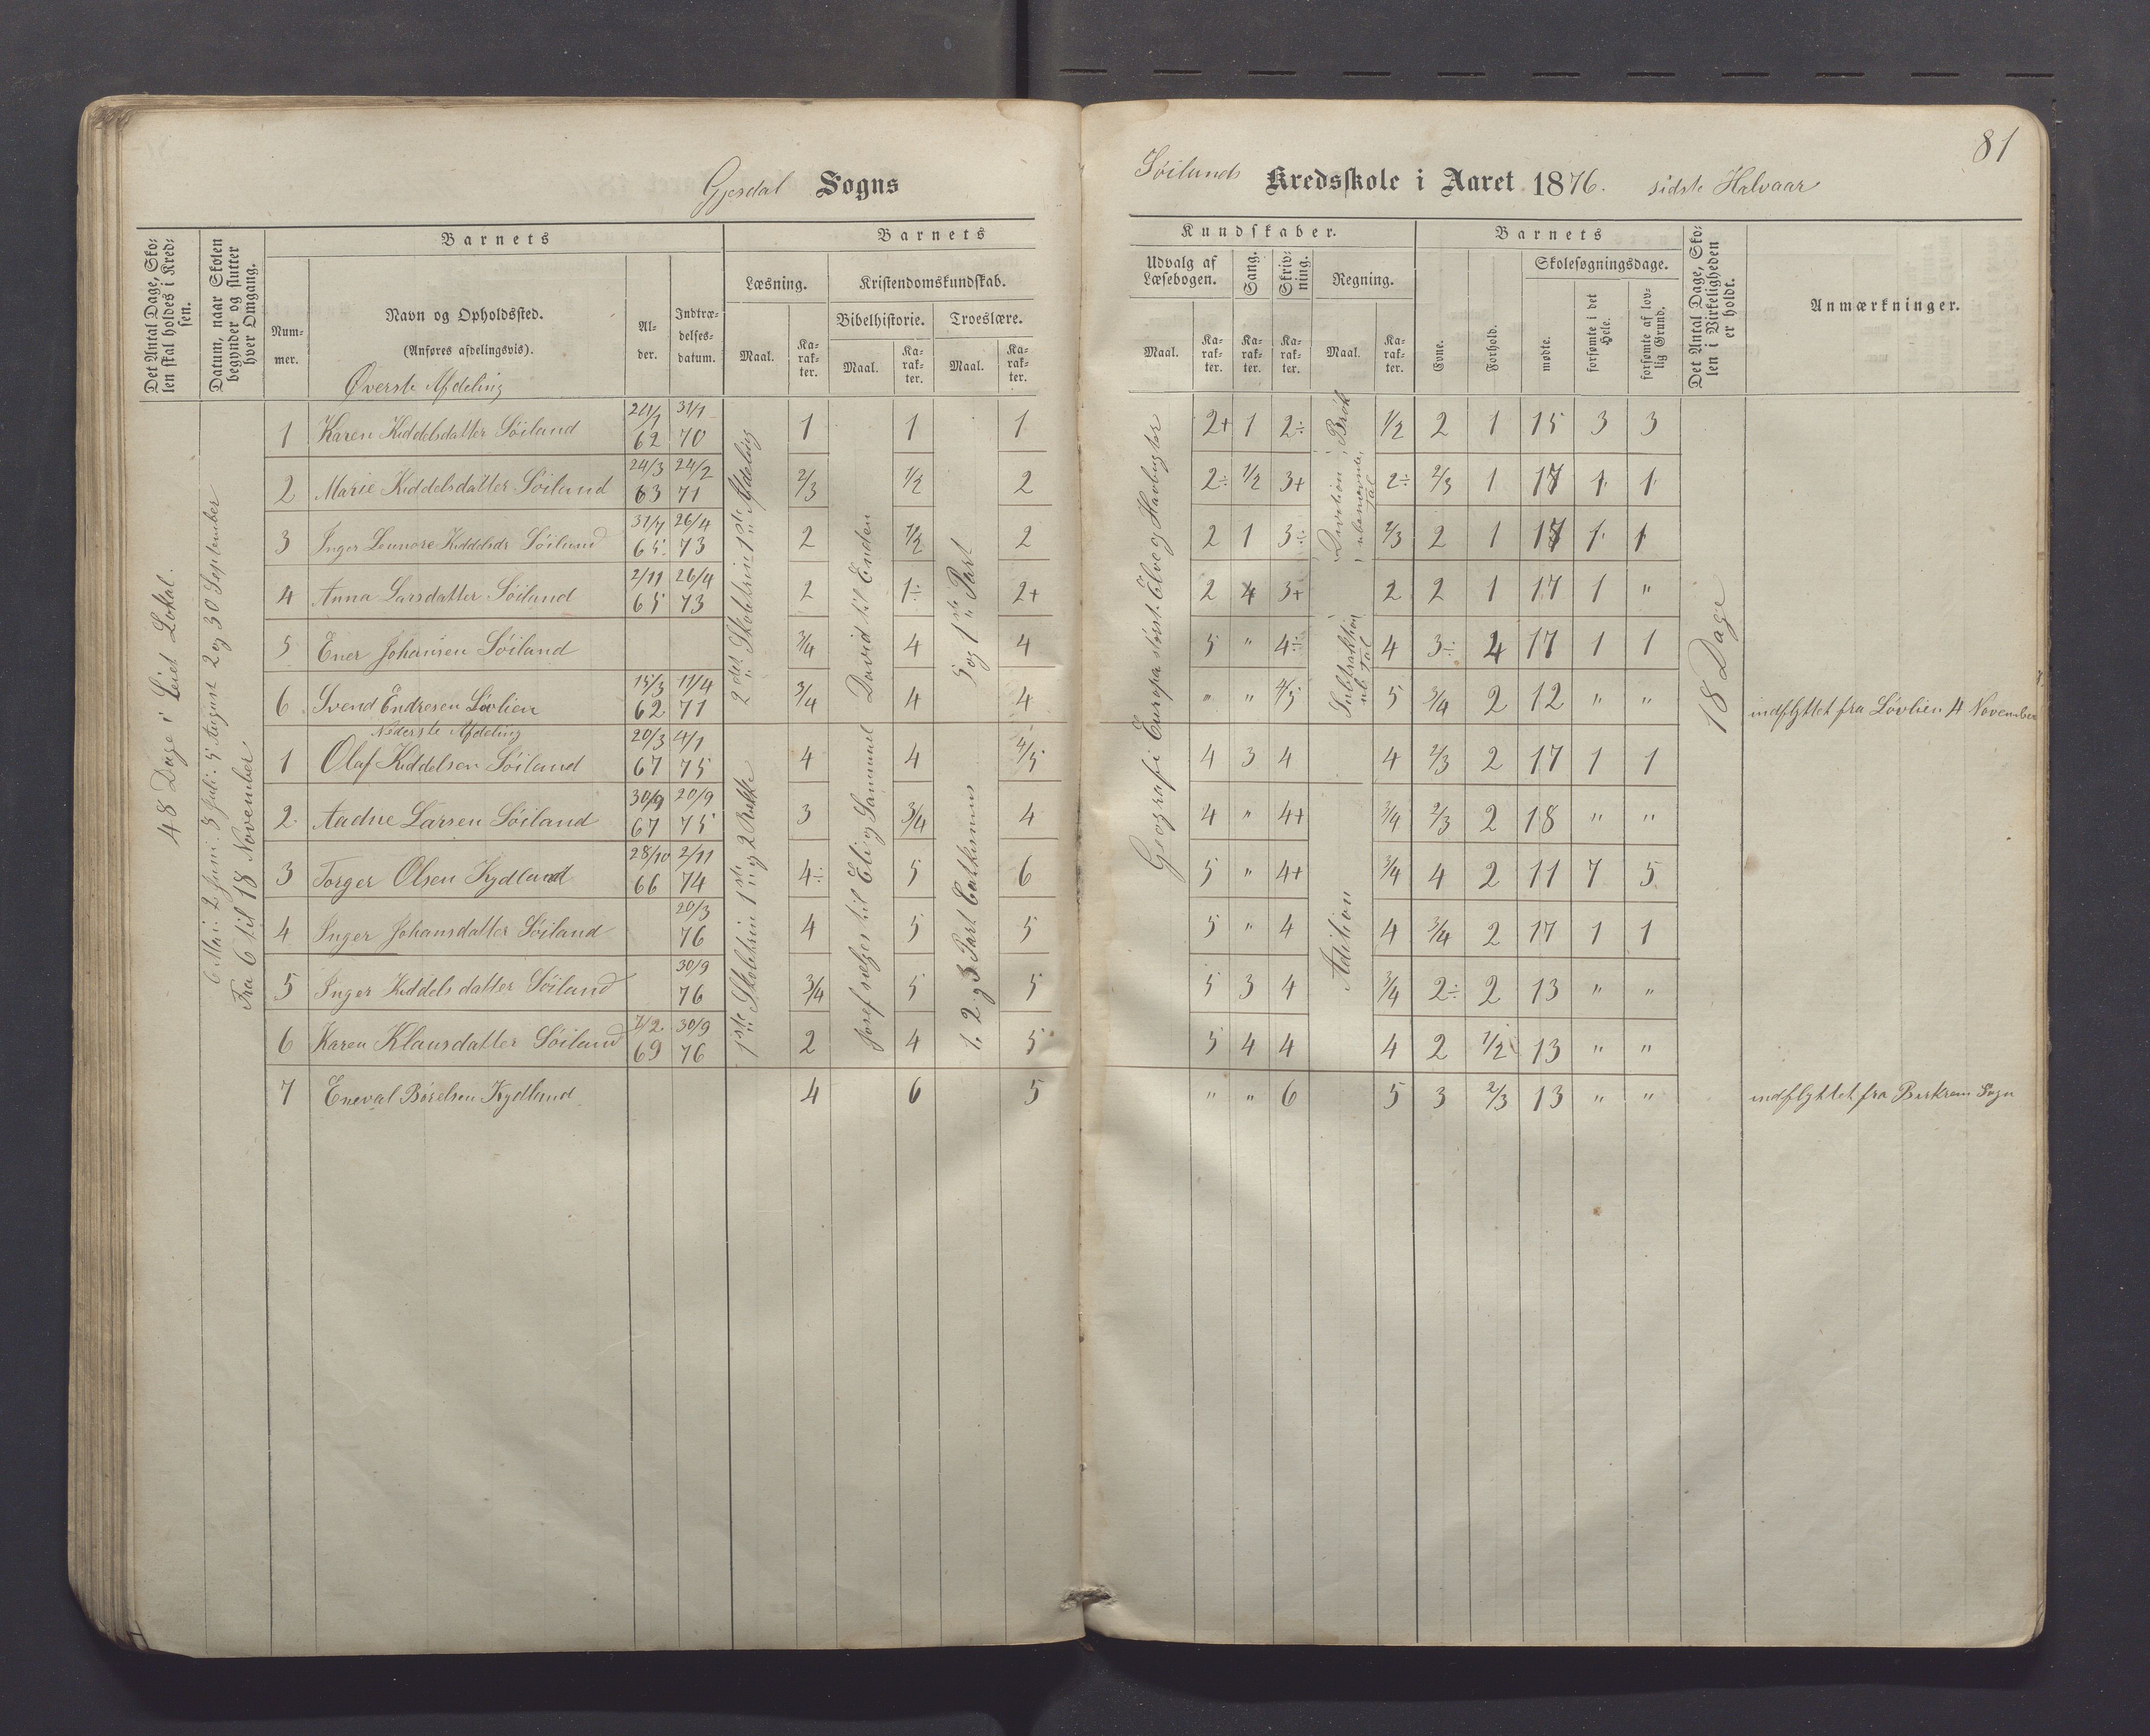 81
Gjesdal Sogns
Søilands Kredsskole i Aaret 1876. sidste Halvaar
Det Antal Dage, Skolen skal holdes i Kredsen.
Datum, naar Skolen begynder og slutter hver Omgang.
Barnets
Nummer.
Navn og Opholdssted.
(Anføres afdelingsvis).
Alder.
Indtrædelsesdatum.
Barnets
Læsning.
Kristendomskundskab.
Bibelhistorie.
Troeslære.
Maal.
Karakter.
Maal.
Karakter.
Maal.
Karakter.
Kundskaber.
Udvalg af Læsebogen.
Sang.
Skrivning.
Regning.
Maal.
Karakter.
Karakter.
Karakter.
Maal.
Karakter.
Barnets
Evne.
Forhold.
Skolesøgningsdage.
mødte.
forsømte i det Hele.
forsømte af lovlig Grund.
Det Antal Dage, Skolen i Virkeligheden er holdt.
Anmærkninger.
48 Dage i Leiet Lokal.
6 Mai: 2 Juni: 3 Juli: 5 August 2 og 30 September
Fra 6 til 18 November
2det Skoletrin 1ste Afdeling
1ste Skoletrin 1ste og 2 Række
David til Enden
Josef sælges til Eli og Sammuel
5 og 1ste Part
1, 2 og 3 Part Catkismus
Geografi Europa størst. Elve og Havbugter
Brøk
Subtraktion
Adition
18 Dage
Øverste Afdeling
1 Karen Kiddelsdatter Søiland 62 31/1 70 1 1 1 2+ 1 2÷ 1/2 2 1 15 3 3
2 Marie Kiddelsdatter Søiland 24/3 63 24/2 71 2/3 1/2 2 2÷ 1/2 3+ 2÷ 2/3 1 17 1 1
3 Inger Lennore Kiddelsdr Søiland 31/7 65 26/4 73 2 1/2 2 2 1 3÷ 2/3 2 1 17 1 1
4 Anna Larsdatter Søiland 2/11 65 26/4 73 2 1÷ 2+ 2 4 3+ 2 2 1 17 1 "
5 Ener Johansen Søiland 3/4 4 4 5 " 4÷ 4 3÷ 4 17 1 1
6 Svend Endresen Løvlien 15/3 62 11/4 71 3/4 4 4 " " 4/5 5 3/4 2 12 " " indflyttet fra Løvlien 4 November
Nederste Afdeling
1 Olaf Kiddelsen Søiland 20/3 67 4/1 75 4 4 4/5 4 3 4 4 2/3 2 17 1 1
2 Aadne Larsen Søiland 30/9 67 20/9 75 3 3/4 4 4 " 4+ 3/4 2/3 2 18 " "
3 Torger Olsen Kydland 28/10 66 2/11 74 4÷ 5 6 5 " 4+ 3/4 4 2 11 7 5
4 Inger Johansdatter Søiland 20/3 76 4 5 5 5 " 4 4 3/4 2 17 1 1
5 Inger Kiddelsdatter Søiland 30/9 76 3/4 5 5 5 3 4 3/4 2÷ 2 13 " "
6 Karen Klausdatter Søiland 7/2 69 30/9 76 2 4 5 5 4 4 4 2 1/2 13 " "
7 Eneval Børelsen Kydland 4 6 5 " " 6 5 3 2/3 13 " " indflyttet fra Birkrem Sogn